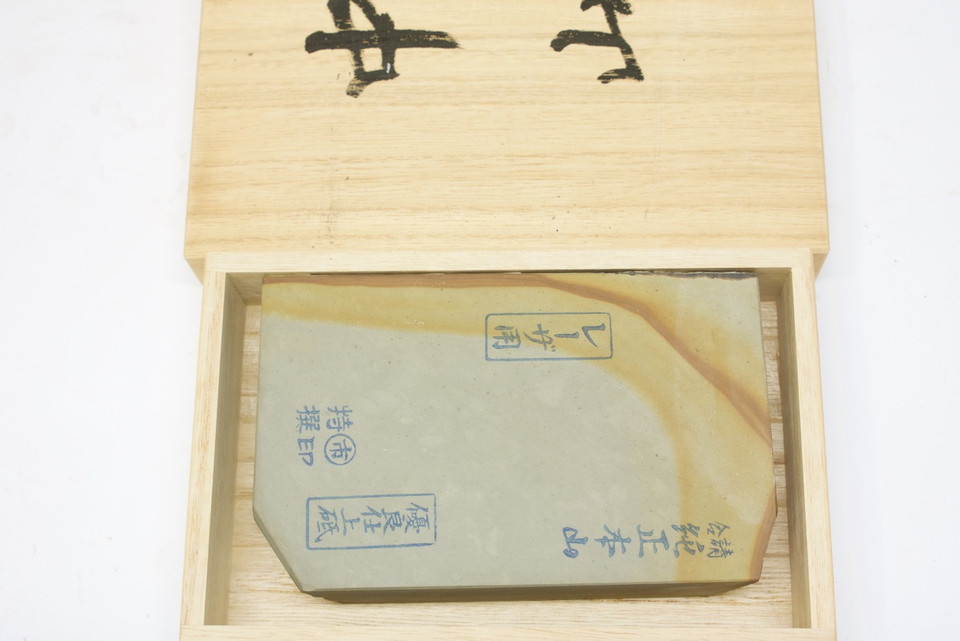 請合
純正本山
優良仕上砥
市印
特撰
レーザ用